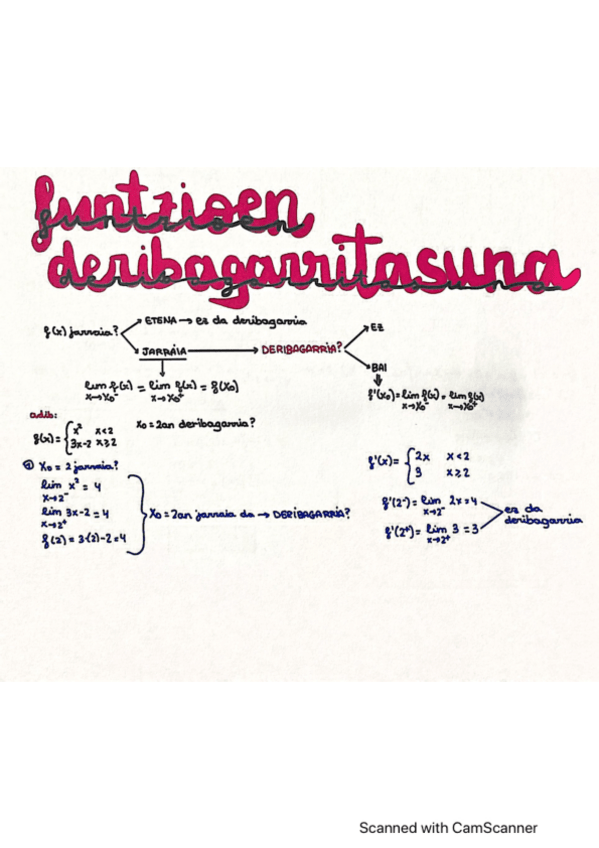 funtzioen
deribagarritasuna
f(x) jarraia?
ETENA → ez da deribagarria
JARRAIA → DERIBAGARRIA?
EZ
BAI
lim f(x) = lim f(x) = f(x₀)
x→x₀⁻ x→x₀⁺
f'(x₀) = lim f(x) = lim f(x)
x→x₀⁻ x→x₀⁺
adib:
f(x) = { x² x<2
3x-2 x≥2
x₀ = 2an deribagarria?
① x₀ = 2 jarraia?
lim x² = 4
x→2⁻
lim 3x-2 = 4
x→2⁺
f(2) = 3·(2)-2 = 4
x₀ = 2an jarraia da → DERIBAGARRIA?
f'(x) = { 2x x<2
3 x≥2
f'(2⁻) = lim 2x = 4
x→2⁻
f'(2⁺) = lim 3 = 3
x→2⁺
ez da
deribagarria
Scanned with CamScanner